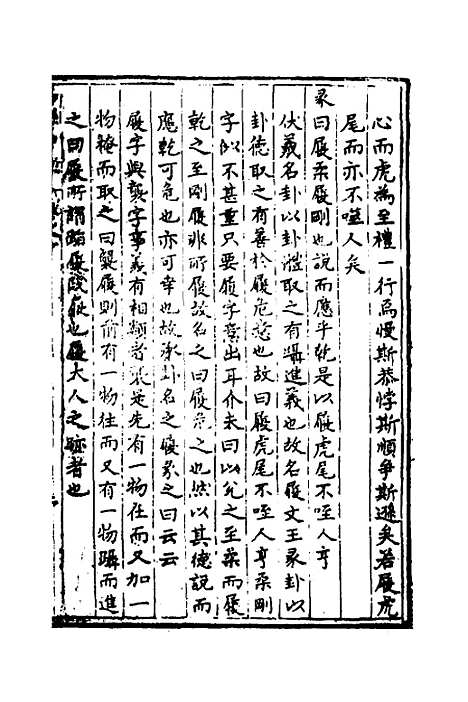 心而虎為至禮一行焉慢斯恭悖斯順爭斯遜矣若履虎
尾而亦不咥人矣
彖曰履柔履剛也說而應乎乾是以履虎尾不咥人亨
伏羲名卦以卦體取之有躡進義也故名履文王彖卦以
卦德取之有善於履危意也故曰履虎尾不咥人亨柔剛
字似不甚重只要履字意出耳介夫曰以兊之至柔而履
乾之至剛履非所履故名之曰履危之也然以其德說而
應乾可危也亦可幸也故承卦名之履彖之曰云云
履字與襲字事義有相類者襲是先有一物在而又加一
物掩而取之曰襲履則前有一物往而又有一物躡而進
之曰履所謂踏履踐蹑也履大人之跡者也